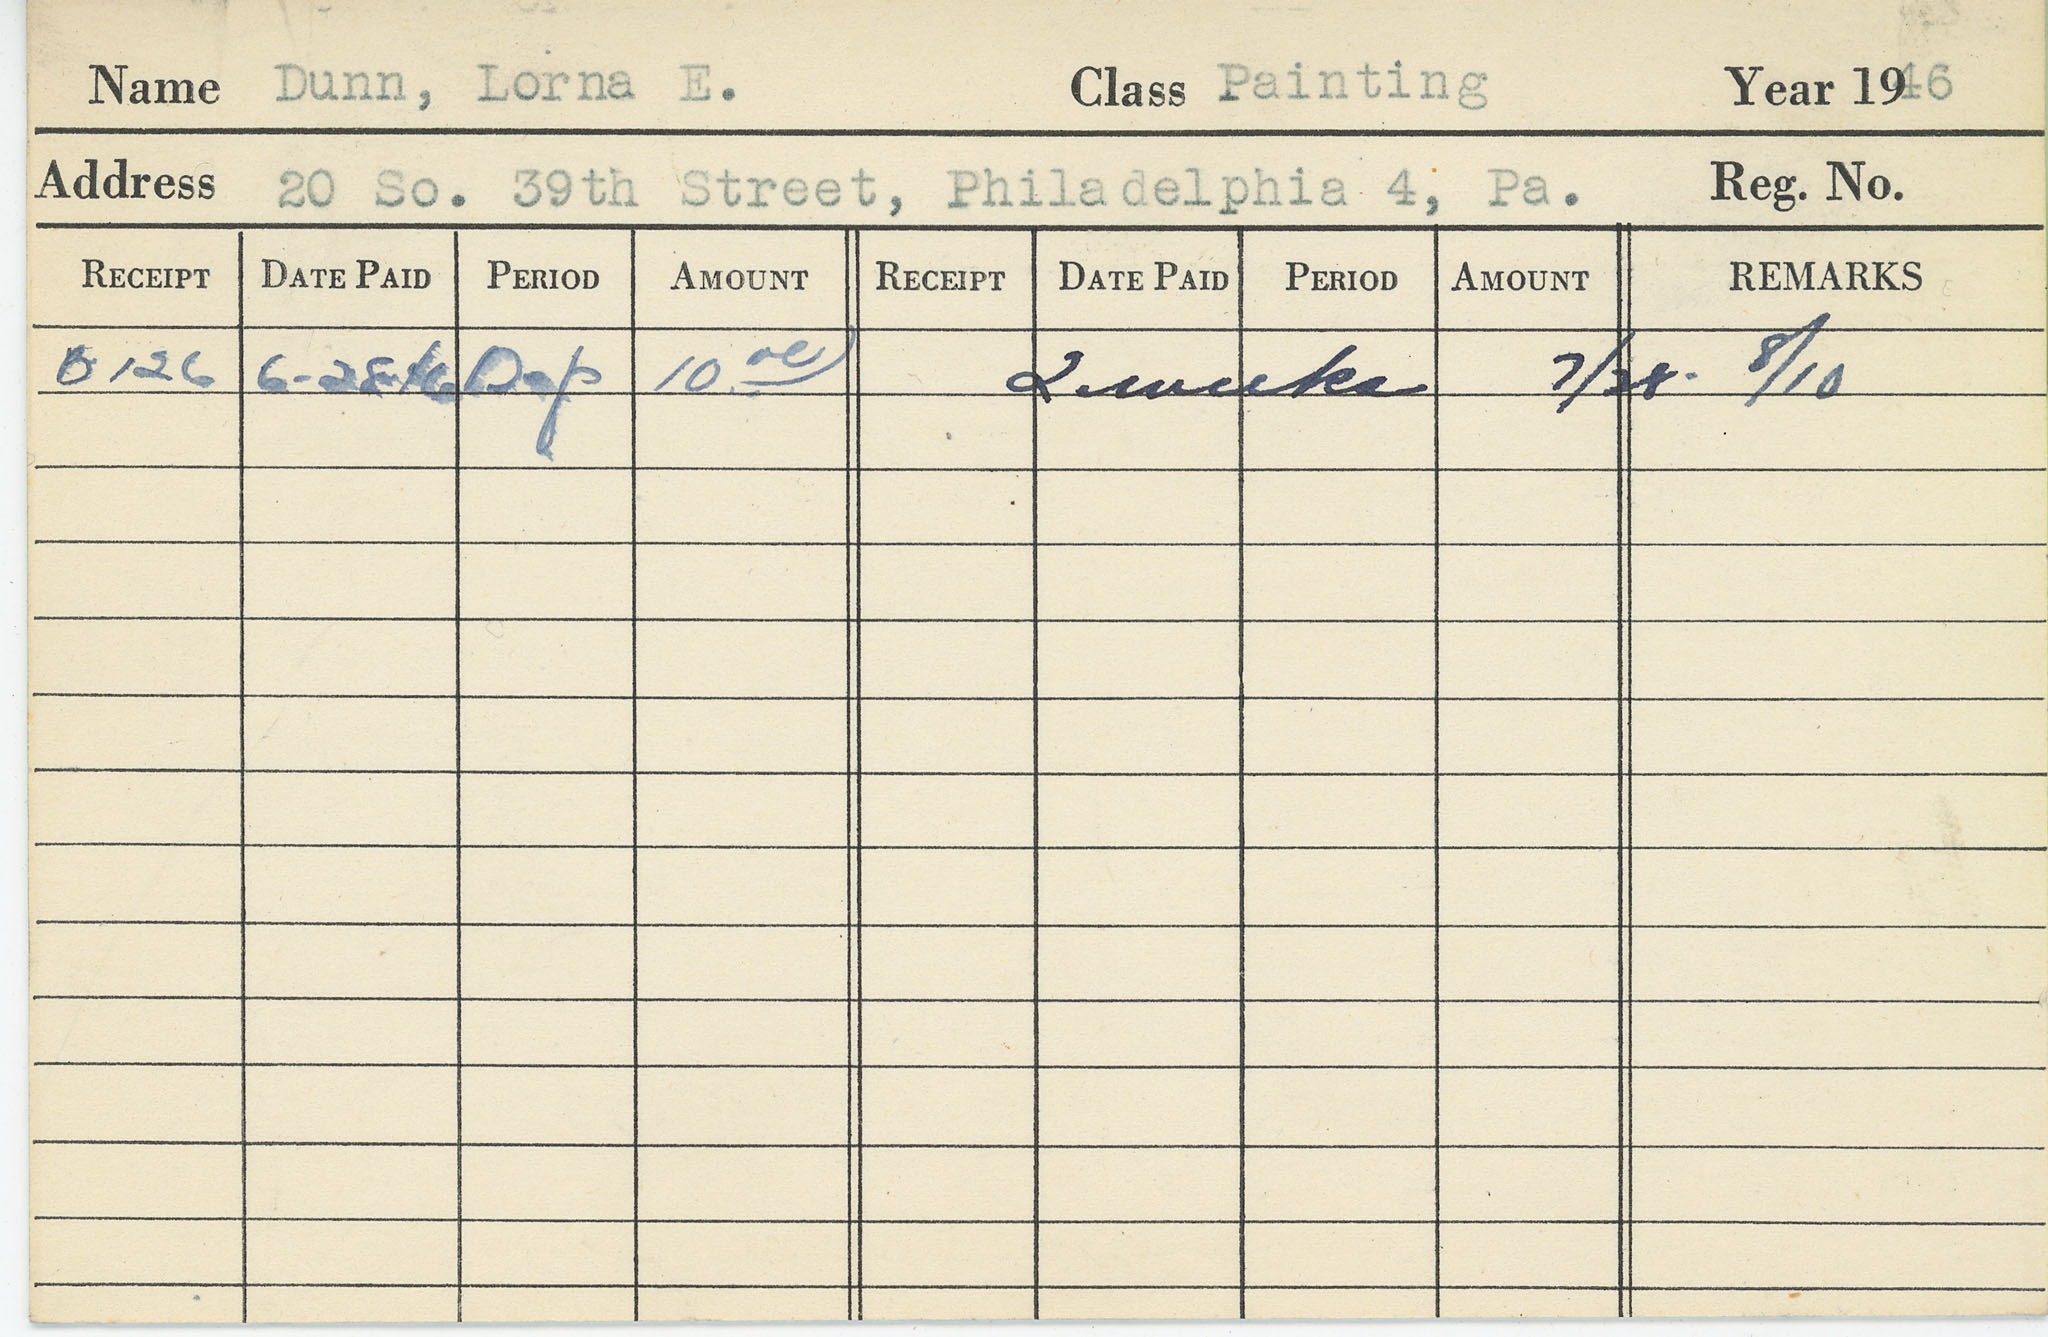 Name Dunn, Lorna E. Class Painting Year 1946
Address 20 So. 39th Street, Philadelphia 4, Pa. Reg. No.
RECEIPT DATE PAID PERIOD AMOUNT RECEIPT DATE PAID PERIOD AMOUNT REMARKS
0126 6-28-46 Dep 10.00 2 weeks 7/28- 8/10